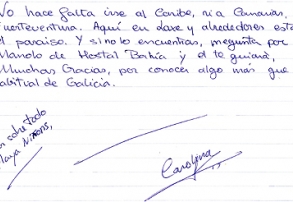 No hace falta irse al Caribe, ni a Canarias,
Fuerteventura. Aquí en Laxe y alrededores está
el paraiso. Y si no lo encuentras, pregunta por
Manolo de Hostal Bahía y él te guiará,
Muchas Gracias, por conocer algo más que
habitual de Galicia.
sobre todo
Playa
Carolina